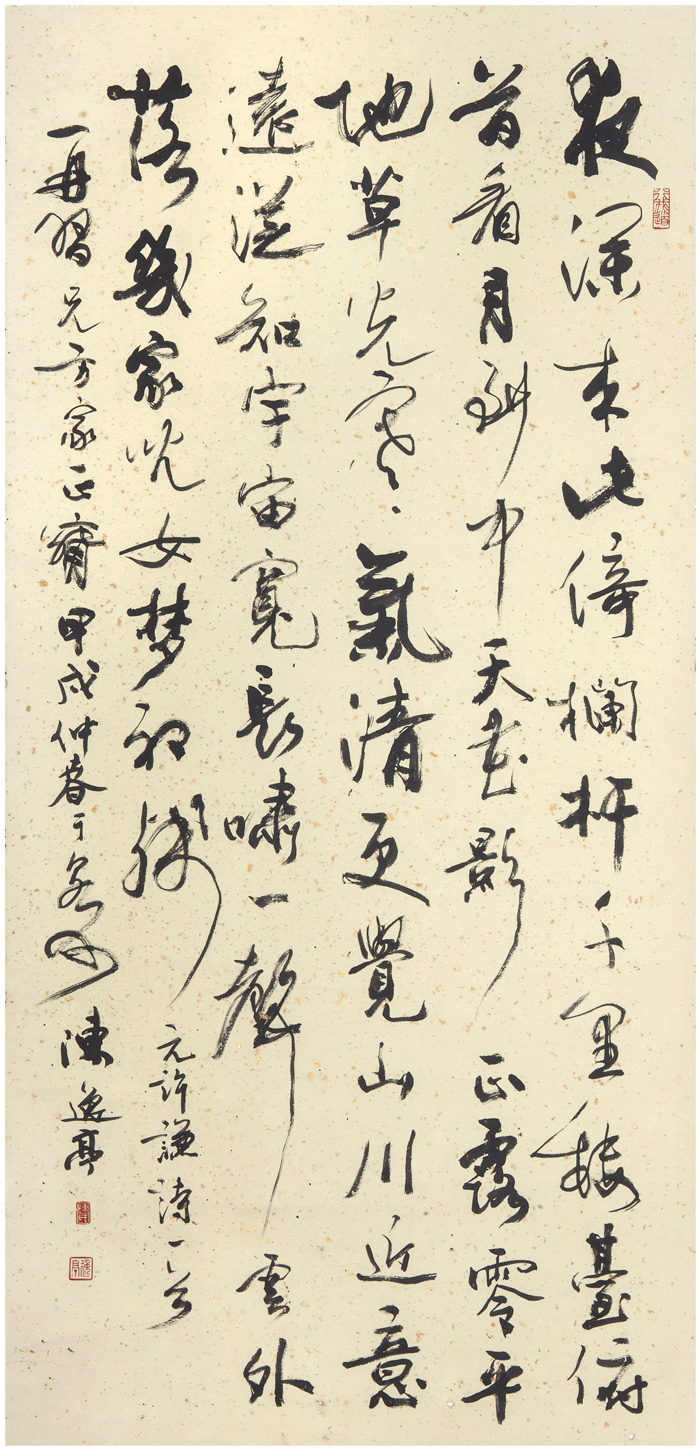 夜深来此倚欄杆千里楼臺俯
首看月到中天花影正露零平
地草光寒氣清更覺山川近意
遠從知宇宙寬長嘯一聲雲外
落幾家兒女梦初殘
元許謙詩一首
兄方家正 甲戌仲春于 陳逸亭